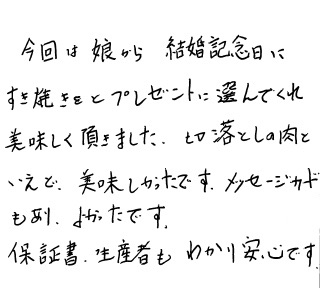 今回は娘から 結婚記念日に
すき焼きをとプレゼントに選んでくれ
美味しく頂きました. 切落としの肉と
いえど、美味しかったです. メッセージカド
もあり、よかったです.
保証書.生産者も わかり安心です.